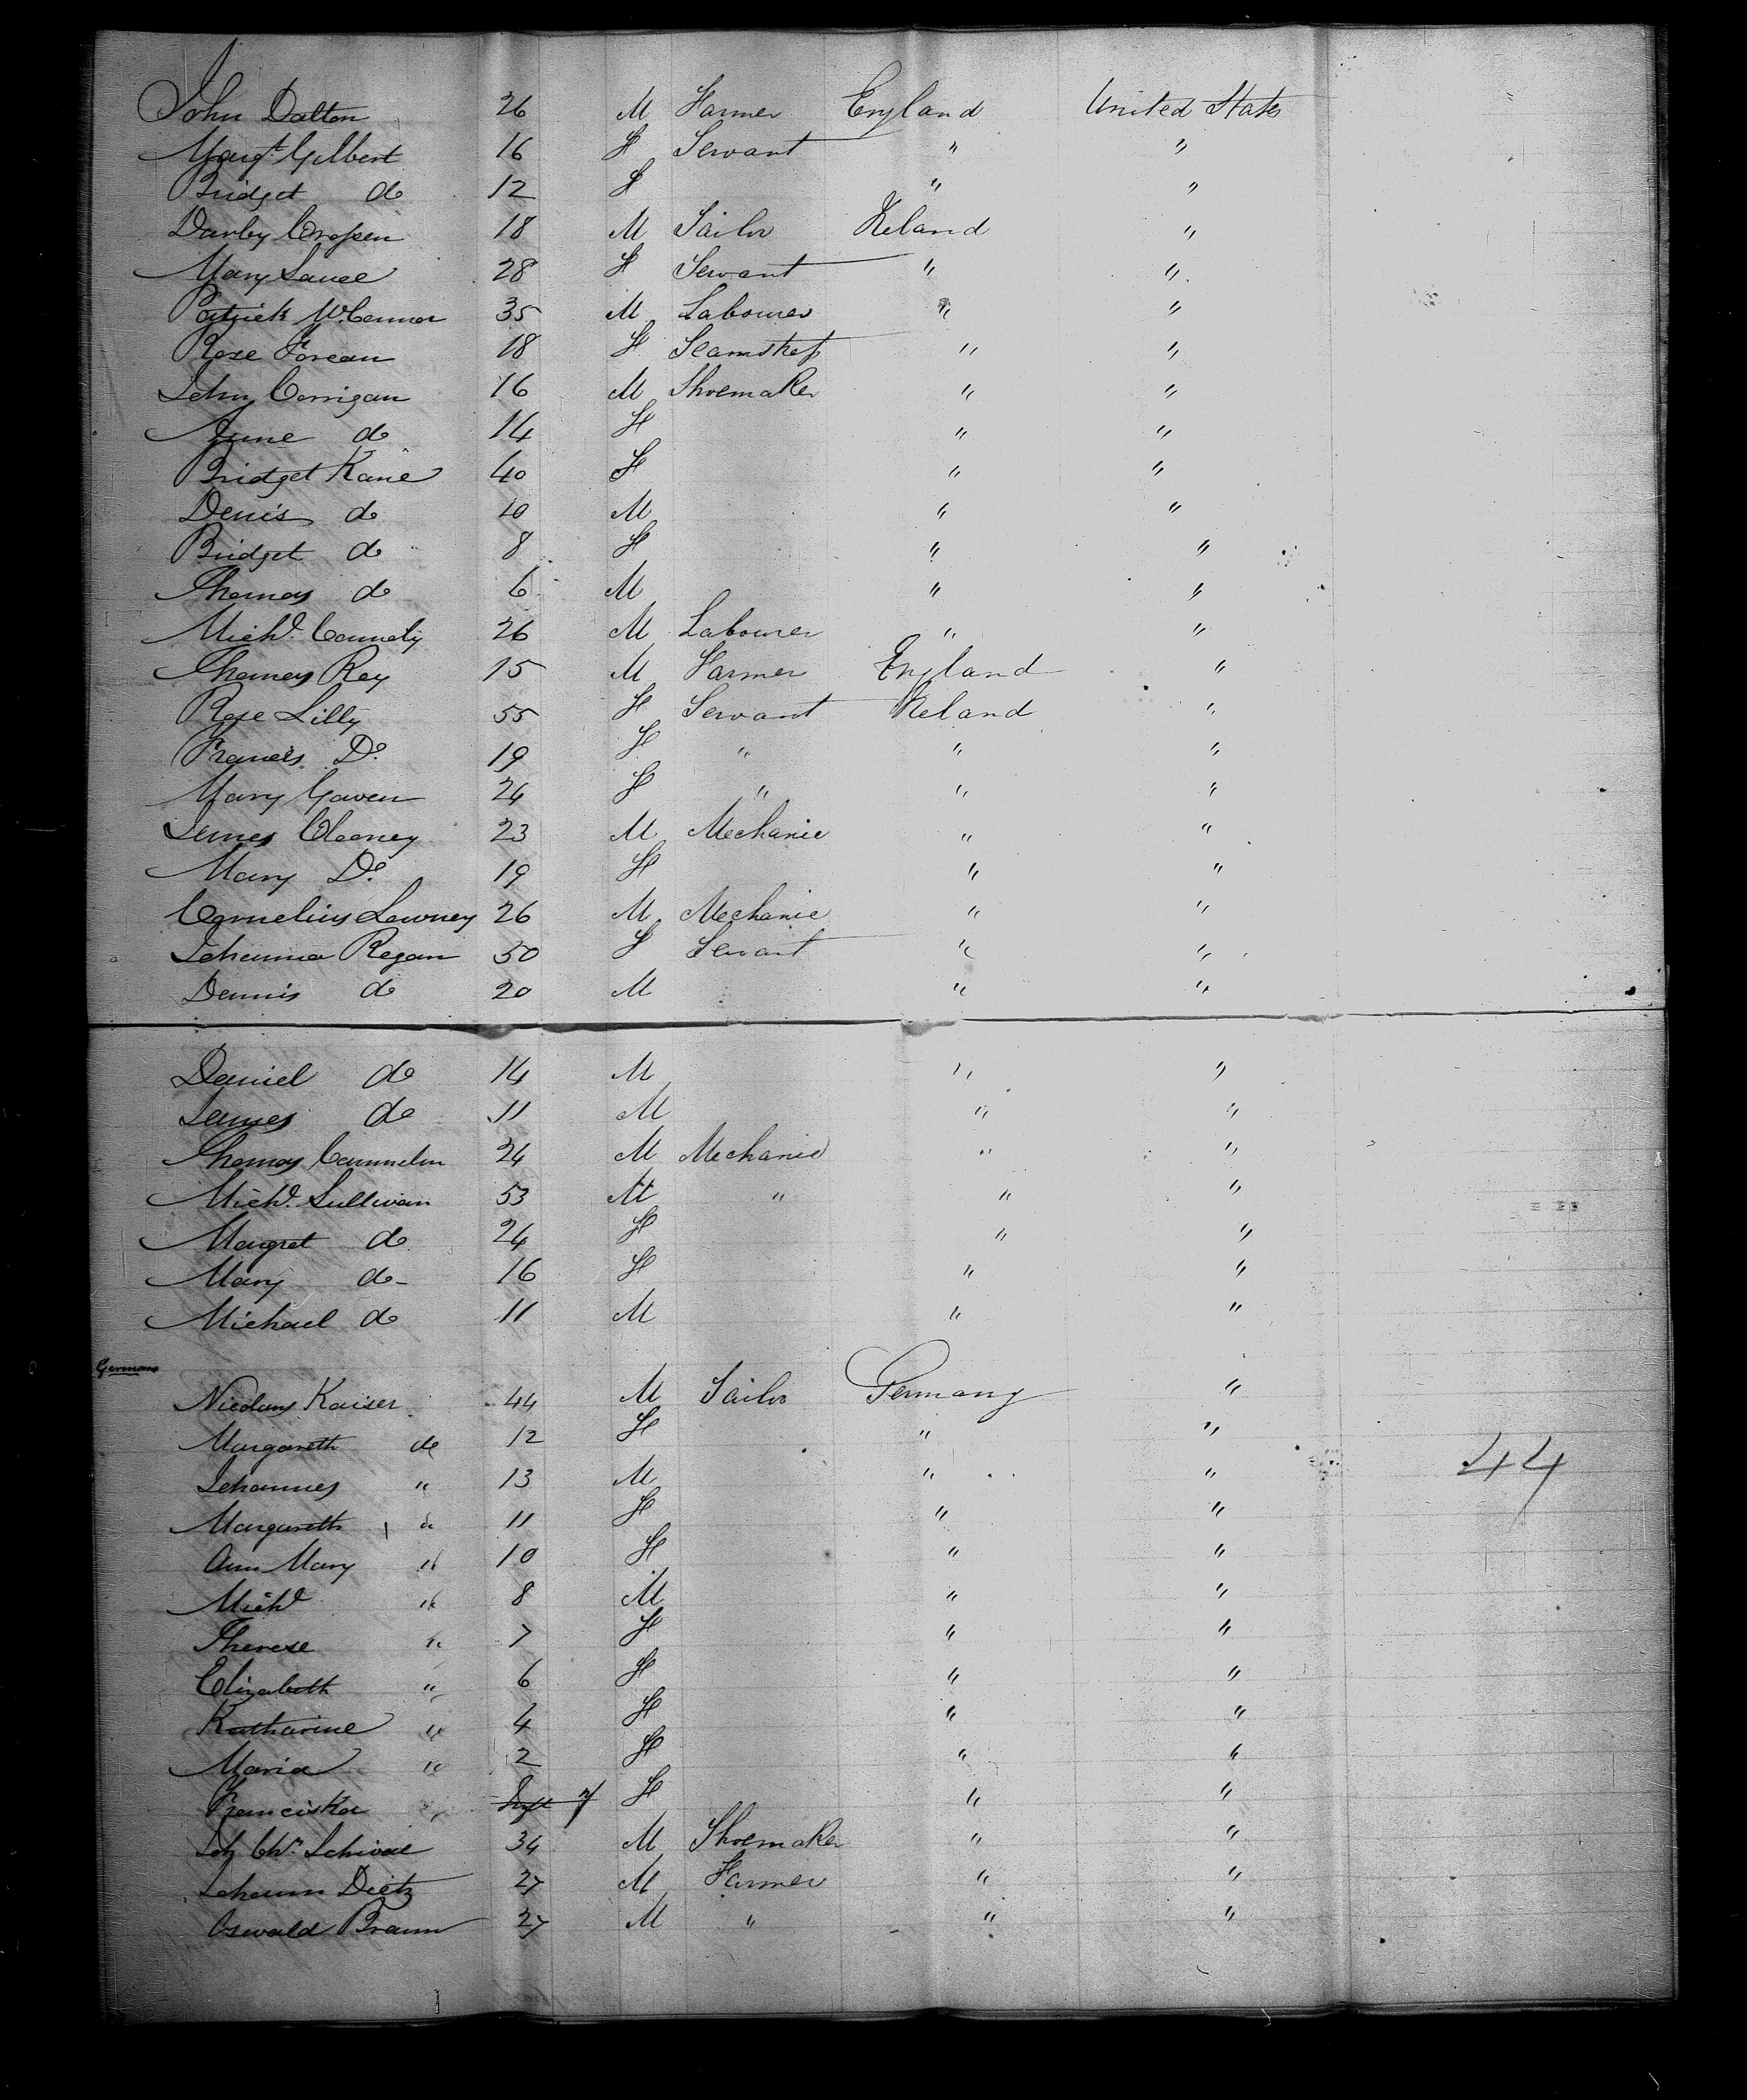 John Dalton 26 M Farmer England United States
Margt. Gilbert 16 F Servant " "
Bridget do 12 F " "
Darby Crossen 18 M Tailor Ireland "
Mary 28 F Servant " "
Patrick McConnor 35 M Labourer " "
Rose 18 F Seamstress " "
John Corrigan 16 M Shoemaker " "
June do 14 F " "
Bridget Kane 40 F " "
Denis do 10 M " "
Bridget do 8 F " "
Thomas do 6 M " "
Michl. Connely 26 M Labourer " "
Thomas Roy 15 M Farmer England "
Rose Lilly 55 F Servant Ireland "
Francis Do. 19 F " " "
Mary Gaven 24 F " " "
James Clooney 23 M Mechanic " "
Mary Do. 19 F " "
Cornelius Lowney 26 M Mechanic " "
Johanna Regan 50 F Servant " "
Dennis do 20 M " "
Daniel do 14 M " "
James do 11 M " "
Thomas 24 M Mechanic " "
Michl. Sullivan 53 M " " "
Margret do 24 F " "
Mary do- 16 F " "
Michael do 11 M " "
Germans
Nicolaus Kaiser 44 M Tailor Germany "
Margareth do 12 F " "
Johannes " 13 M " " 44
Margareth " 11 F " "
Ann Mary " 10 F " "
Michl " 8 M " "
Therese " 7 F " "
Elizabeth " 6 F " "
Katharine " 4 F " "
Maria " 2 F " "
Franciska " F " "
Joh Chr. 34 M Shoemaker " "
Johann Dietz 27 M Farmer " "
Oswald Braun 27 M " " "